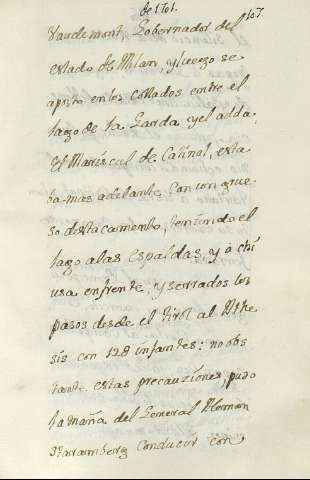 de 1701.
107.
Vaudemont, Gobernador del
estado de Milan, y luego se
aposto en los collados entre el
lago de la Garda y el adda,
El Mariscal de Catinal, esta
ba mas adelante, con un grue
so destacamento, teniendo el
lago a las espaldas, y à chi
usa enfrente: y serrados los
pasos desde el tirol al Athe
sis con 128 infantes: no obs
tante estas precauziones, pudo
la maña del General Aleman
Staramberg conducir con